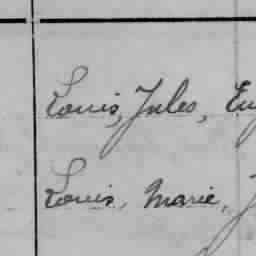 Louis, Jules,
Louis, Marie,